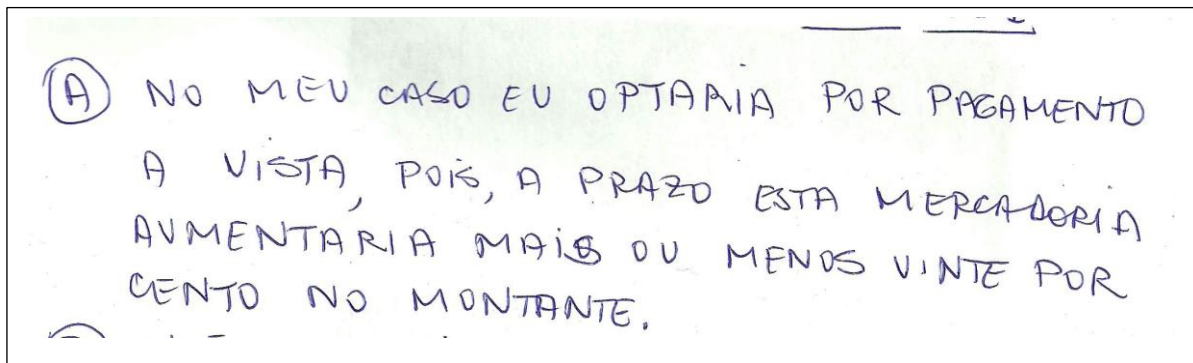 A NO MEU CASO EU OPTARIA POR PAGAMENTO
A VISTA, POIS, A PRAZO ESTA MERCADORIA
AUMENTARIA MAIS OU MENOS VINTE POR
CENTO NO MONTANTE.